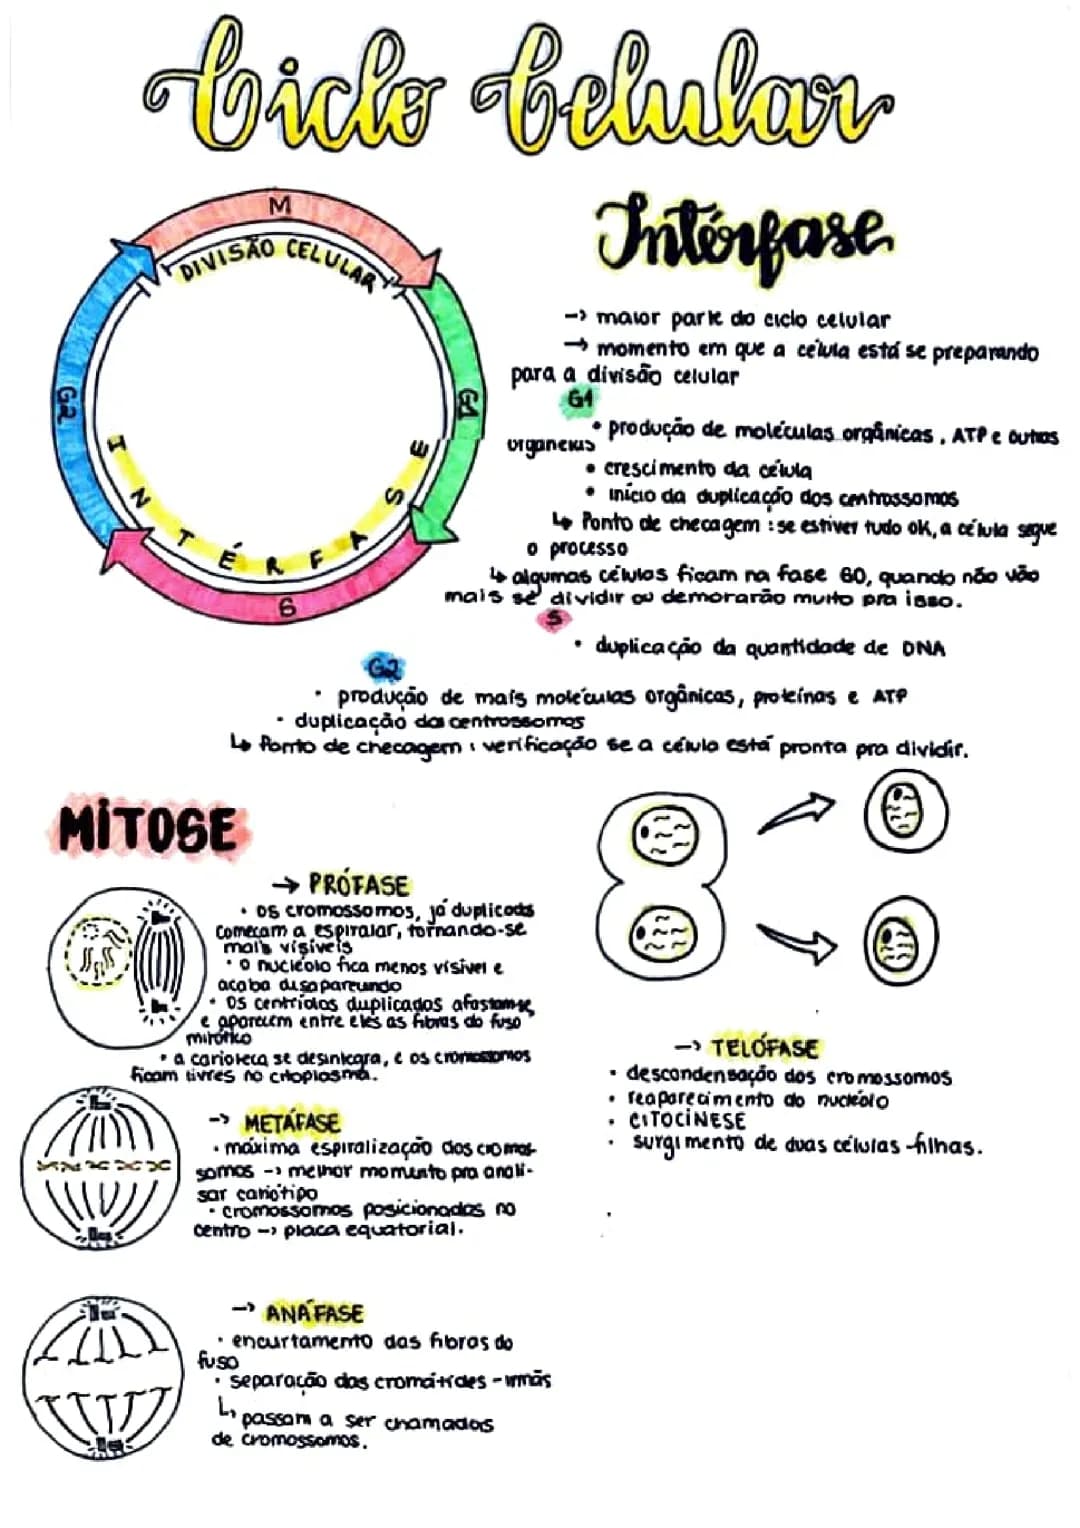 Ciclo Celular
M
DIVISÃO CELULAR
G2
G1
INTÉRFASE
S
Intérfase
-> maior parte do ciclo celular
→ momento em que a célula está se preparando
para a divisão celular
G1
• produção de moléculas orgânicas, ATP e outras
organelas
• crescimento da célula
• início da duplicação dos centrossomos
↳ Ponto de checagem : se estiver tudo ok, a célula segue
o processo
↳ algumas células ficam na fase G0, quando não vão
mais se dividir ou demorarão muito pra isso.
S
• duplicação da quantidade de DNA
G2
• produção de mais moléculas orgânicas, proteínas e ATP
• duplicação dos centrossomos
↳ Ponto de checagem : verificação se a célula está pronta pra dividir.
MITOSE
→ PRÓFASE
• os cromossomos, já duplicados
começam a espiralar, tornando-se
mais visíveis
• o nucléolo fica menos visível e
acaba desaparecendo
• os centríolos duplicados afastam-se,
e aparecem entre eles as fibras do fuso
mitótico
• a carioteca se desintegra, e os cromossomos
ficam livres no citoplasma.
-> METÁFASE
• máxima espiralização dos cromos-
somos -> melhor momento pra anali-
sar cariótipo
• cromossomos posicionados no
centro -> placa equatorial.
-> ANÁFASE
• encurtamento das fibras do
fuso
• separação das cromátides - irmãs
↳ passam a ser chamados
de cromossomos.
-> TELÓFASE
• descondensação dos cromossomos
• reaparecimento do nucléolo
• CITOCINESE
• surgimento de duas células-filhas.